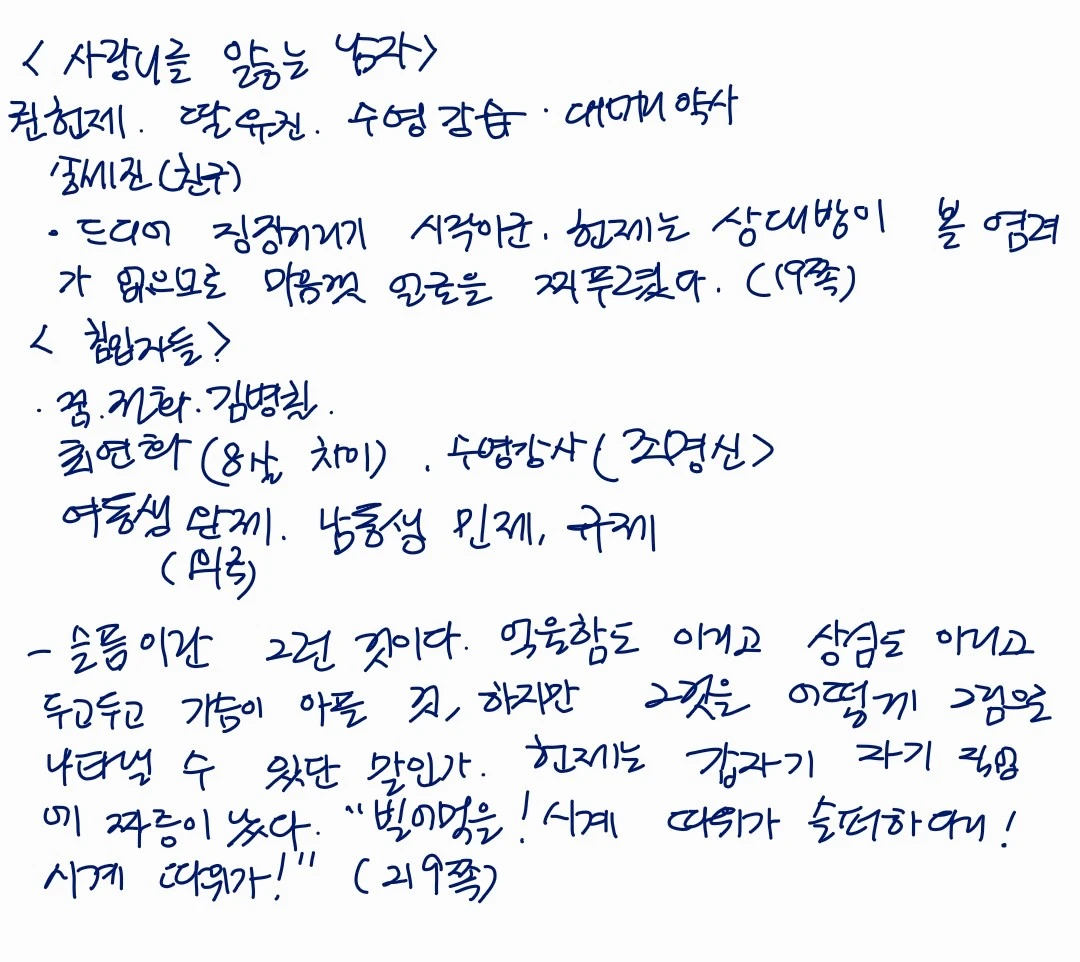 < 사랑니를 앓는 남자>
권헌제. 딸 유진. 수영 강습 · 대머리 약사
송세진 (친구)
· 드디어 징징거리기 시작이군. 헌제는 상대방이 볼 염려
가 없으므로 마음껏 얼굴을 찌푸렸다. (19쪽)
< 침입자들 >
· 점. 전화. 김병칠.
최연화 (8살 차이). 수영강사 (조명신>
여동생 완제. 남동생 민제, 규제
(미국)
- 슬픔이란 그런 것이다. 억울함도 아니고 상심도 아니고
두고두고 가슴이 아플 것, 하지만 그것을 어떻게 그림으로
나타낼 수 있단 말인가. 헌제는 갑자기 자기 직업
에 짜증이 났다. "빌어먹을! 시계 따위가 슬퍼하다니!
시계 따위가!" (219쪽)